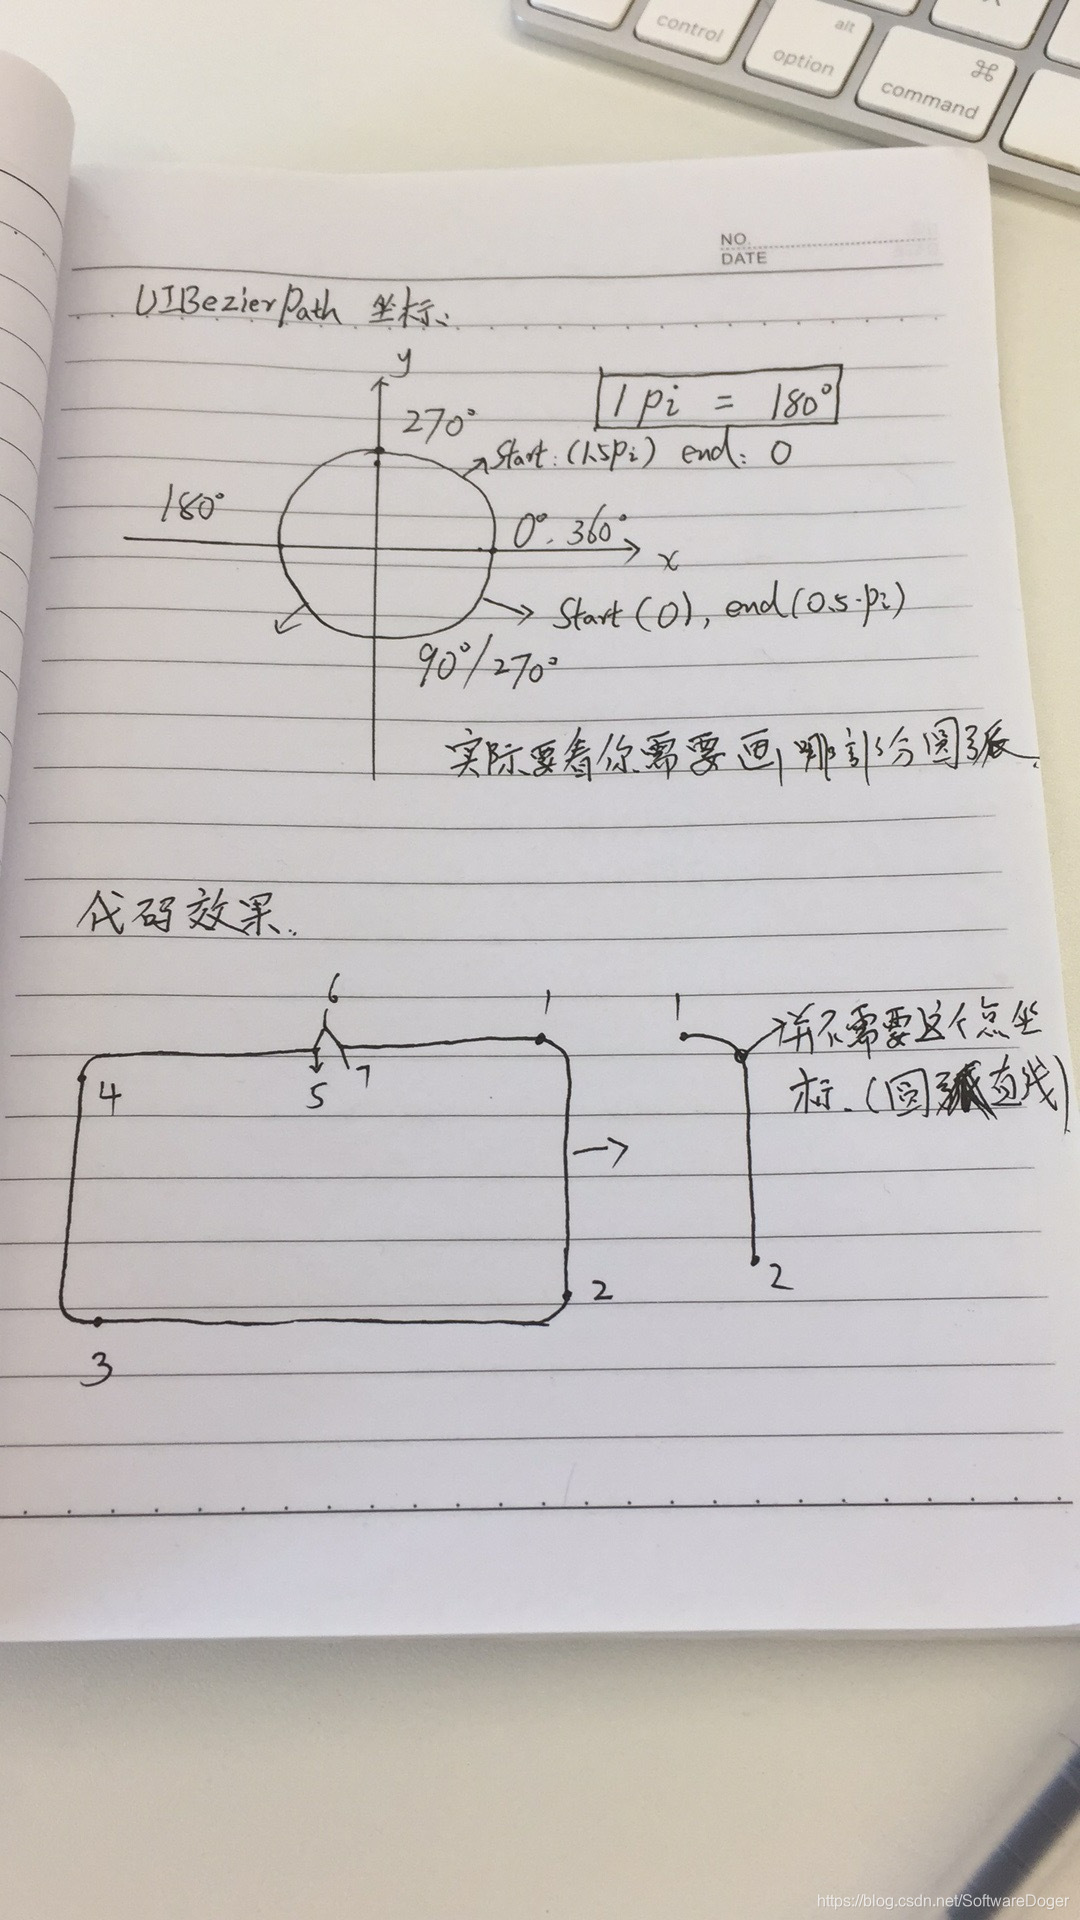 control
alt
option
⌘
command
NO.
DATE
UIBezierPath 坐标:
y
270°
1 pi = 180°
Start: (1.5pi) end: 0
180°
0°. 360°
x
Start (0), end (0.5·pi)
90°/270°
实际要看你需要画哪部分圆弧.
代码效果:
6
1
1
并不需要这个点坐
标. (圆弧 直线)
4
5
7
2
2
3
https://blog.csdn.net/SoftwareDoger